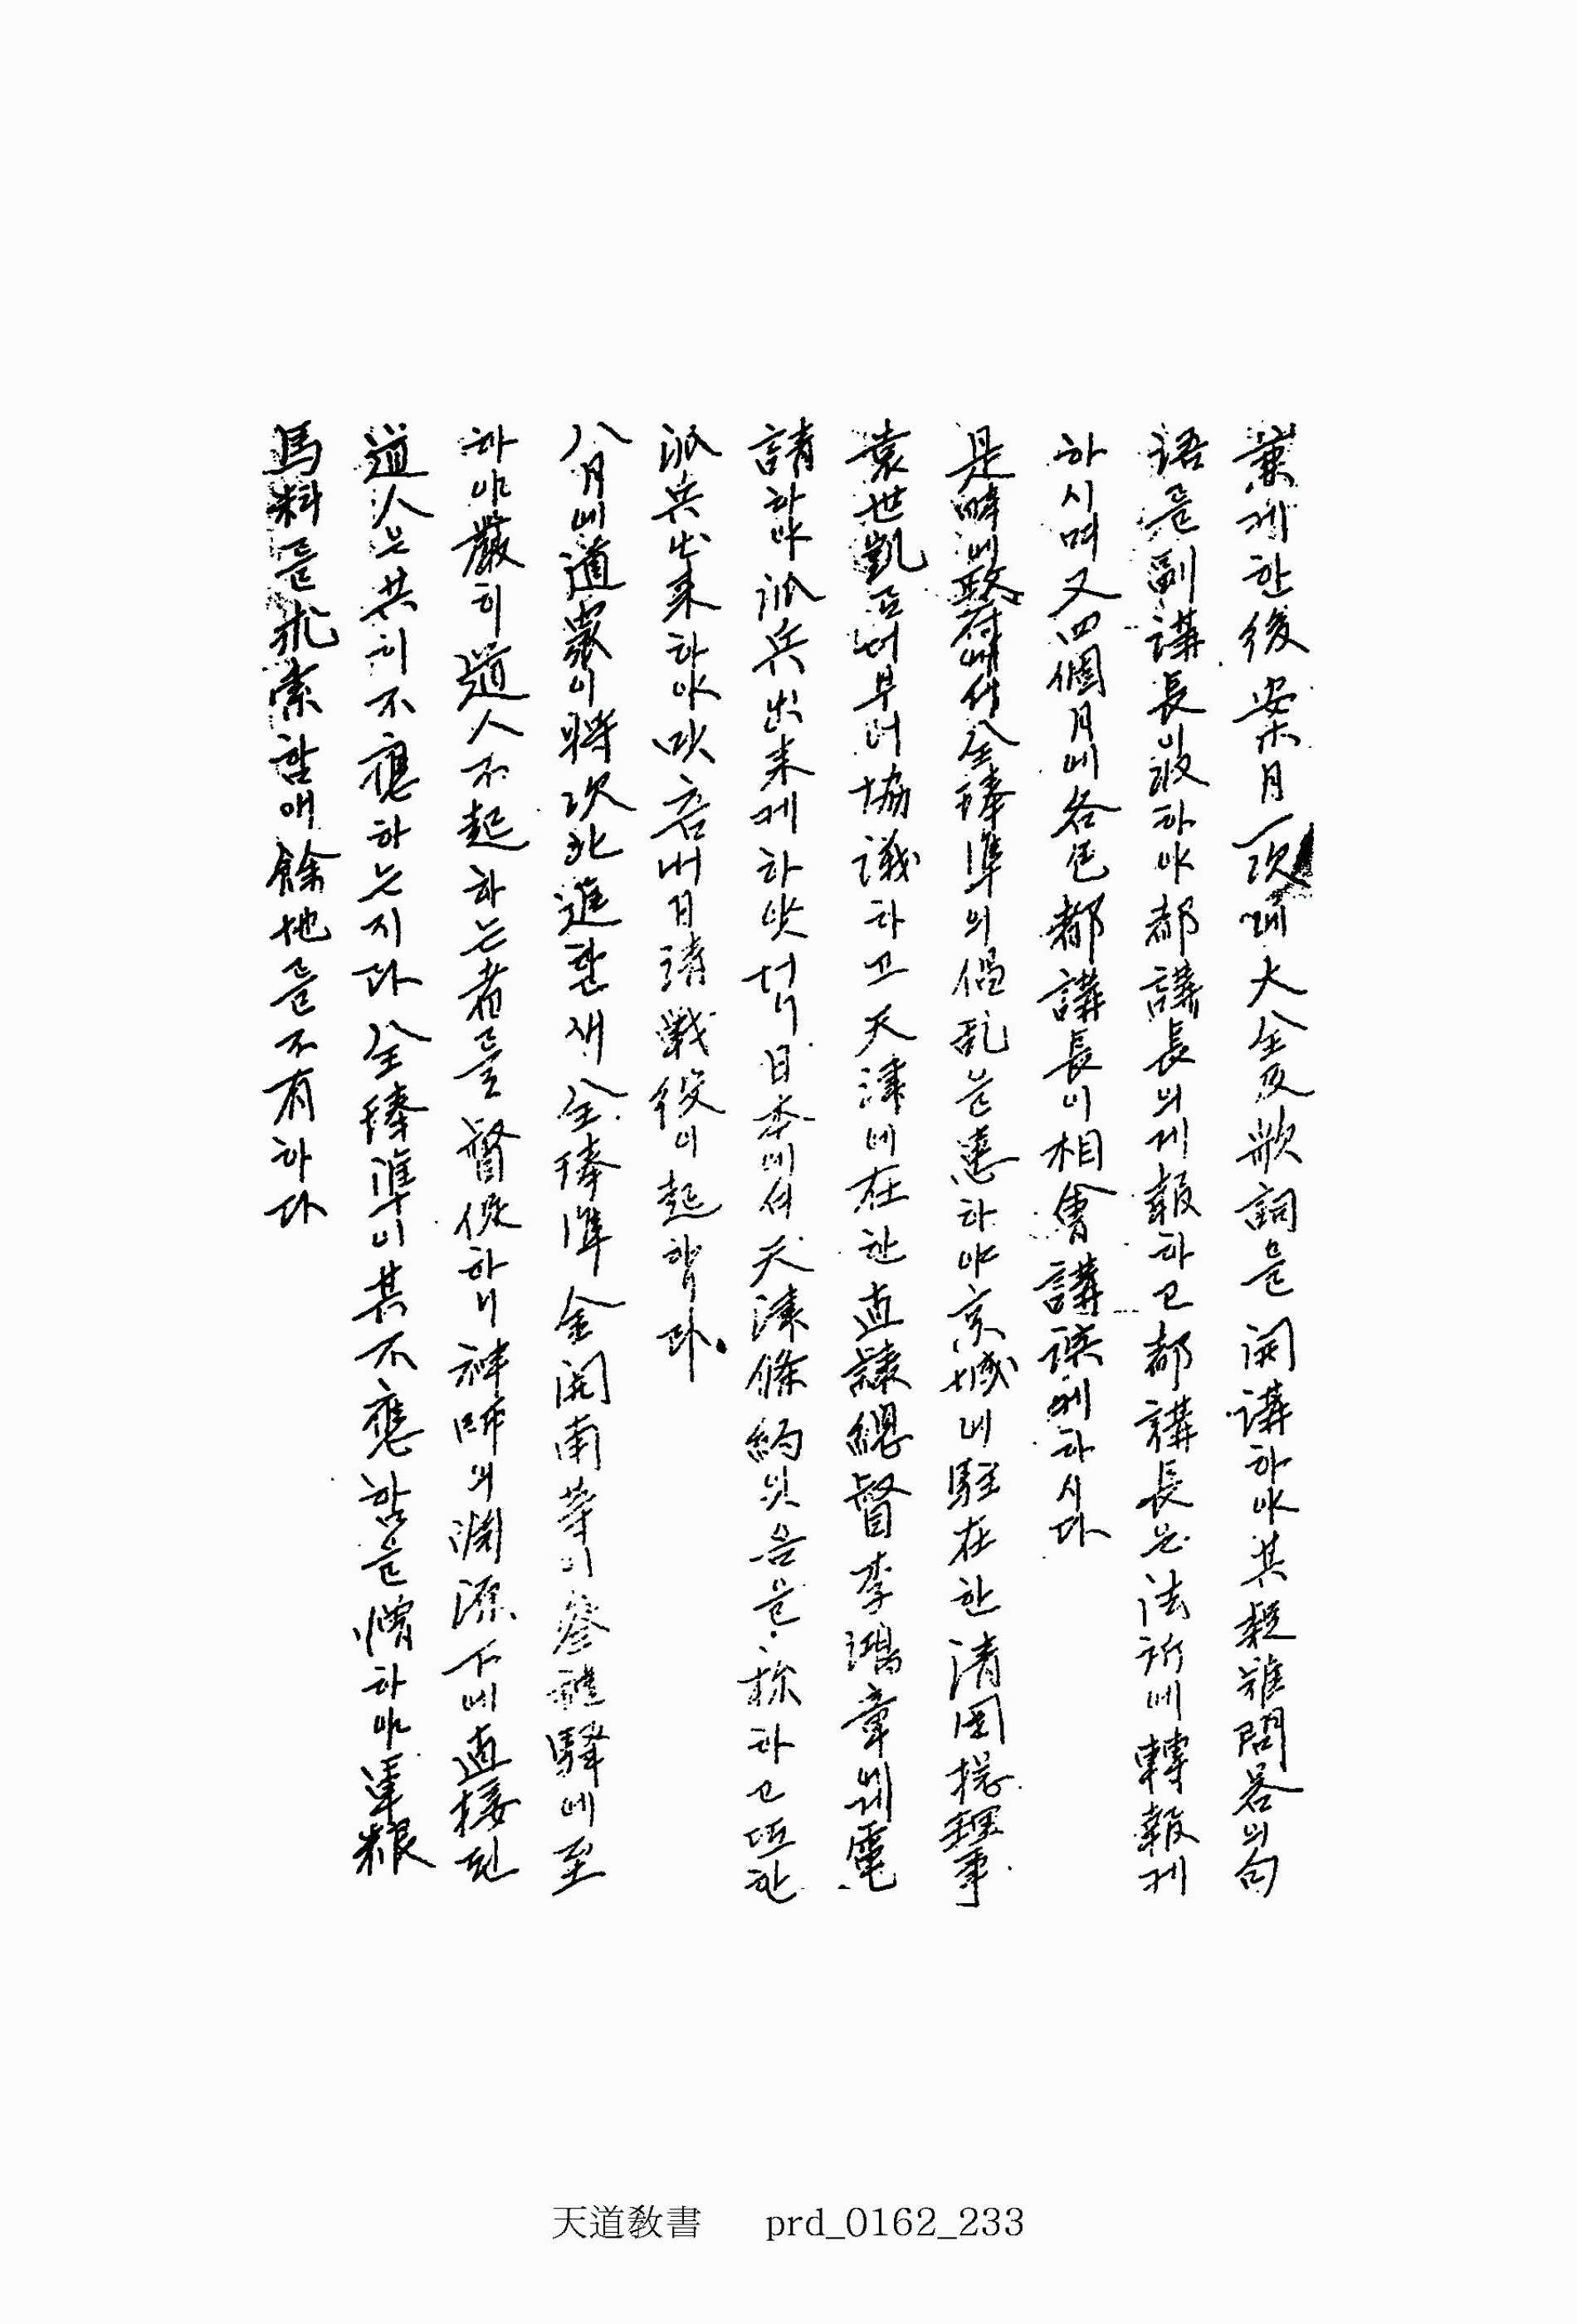 業케 한 後 每月 一次에 大全及歌詞를 開講하야 其 疑難問答의 句
語를 副講長이 收하야 都講長의게 報하고 都講長은 法所에 轉報케
하시며 又 四個月에 各包 都講長이 相會講談케 하시다
是時에 政府에셔 全琫準의 倡亂을 患하야 京城에 駐在한 淸国 揔理事
袁世凱로 더부러 協議하고 天津에 在한 直隸總督 李鴻章에게 電
請하야 派兵出来케 하얏더니 日本에셔 天津條約 잇음을 称하고 또한
派兵出来하야 吹音에 日淸戰役이 起하니라.
八月에 道衆이 將次 北進할새 全琫準 金開南 等이 參禮驛에 至
하야 嚴히 道人 不起하는 者를 督促하니 神師의 淵源下에 直接된
道人은 共히 不應하는지라 全琫準이 其 不應함을 憎하야 軍粮
馬料를 求索함애 餘地를 不有하다
天道敎書 prd_0162_233